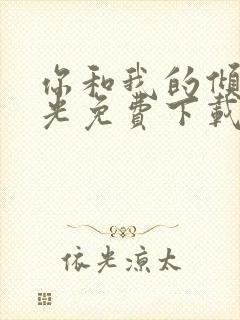 你和我的倾
光免费下载
依光凉太